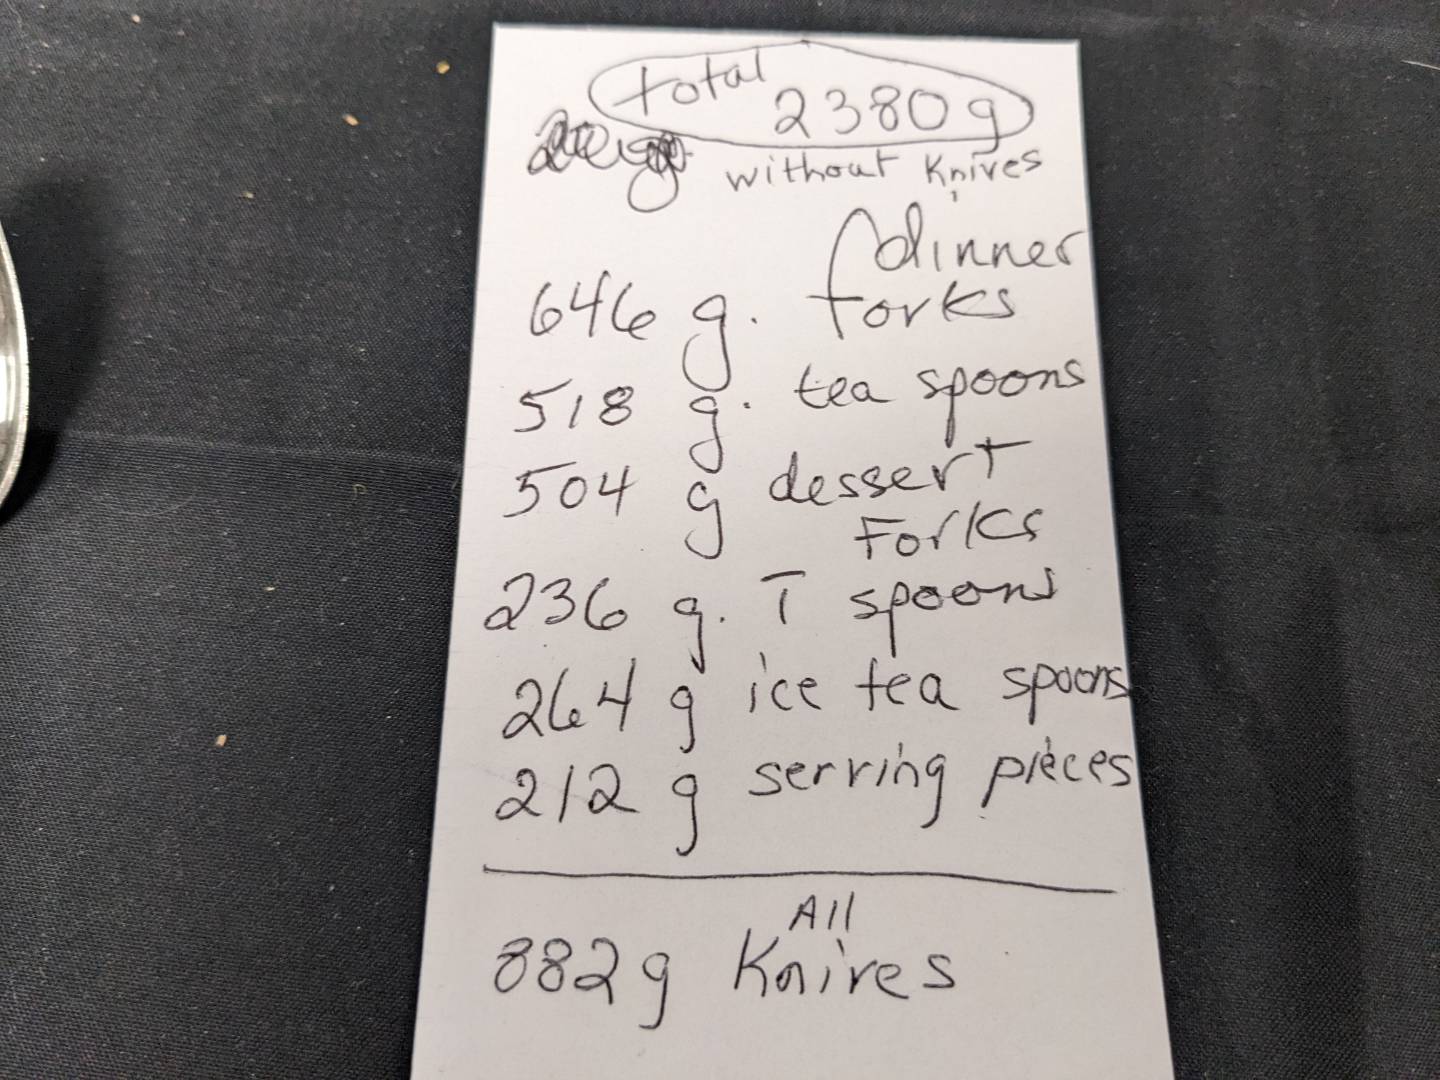 total 2380 g
without Knives
dinner
646 g. forks
518 g. tea spoons
504 g dessert
Forks
236 g. T spoons
264 g ice tea spoons
212 g serving pieces
All
882 g Knives